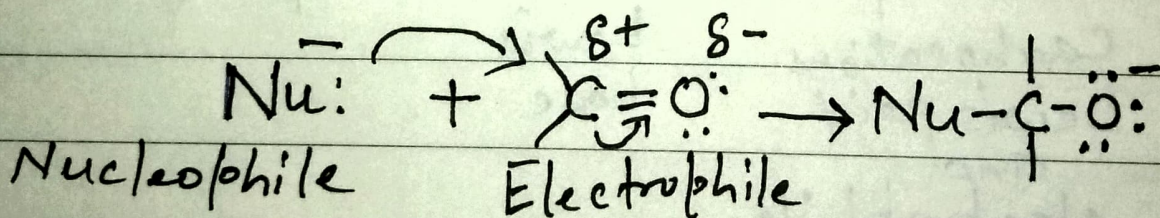 δ+ δ-
Nu:⁻ + C≡O: → Nu-C-O:⁻
Nucleophile Electrophile